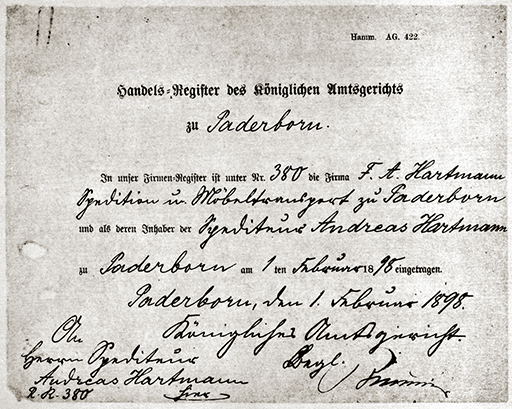 Hamm. AG. 422.
Handels-Register des Königlichen Amtsgerichts
zu Paderborn.
In unser Firmen-Register ist unter Nr. 380 die Firma F. A. Hartmann
Spedition u. Möbeltransport zu Paderborn
und als deren Inhaber der Spediteur Andreas Hartmann
zu Paderborn am 1 ten Februar 1898 eingetragen.
Paderborn, den 1. Februar 1898.
Königliches Amtsgericht
An
Herrn Spediteur
Begl.
Andreas Hartmann
hier
R. 380